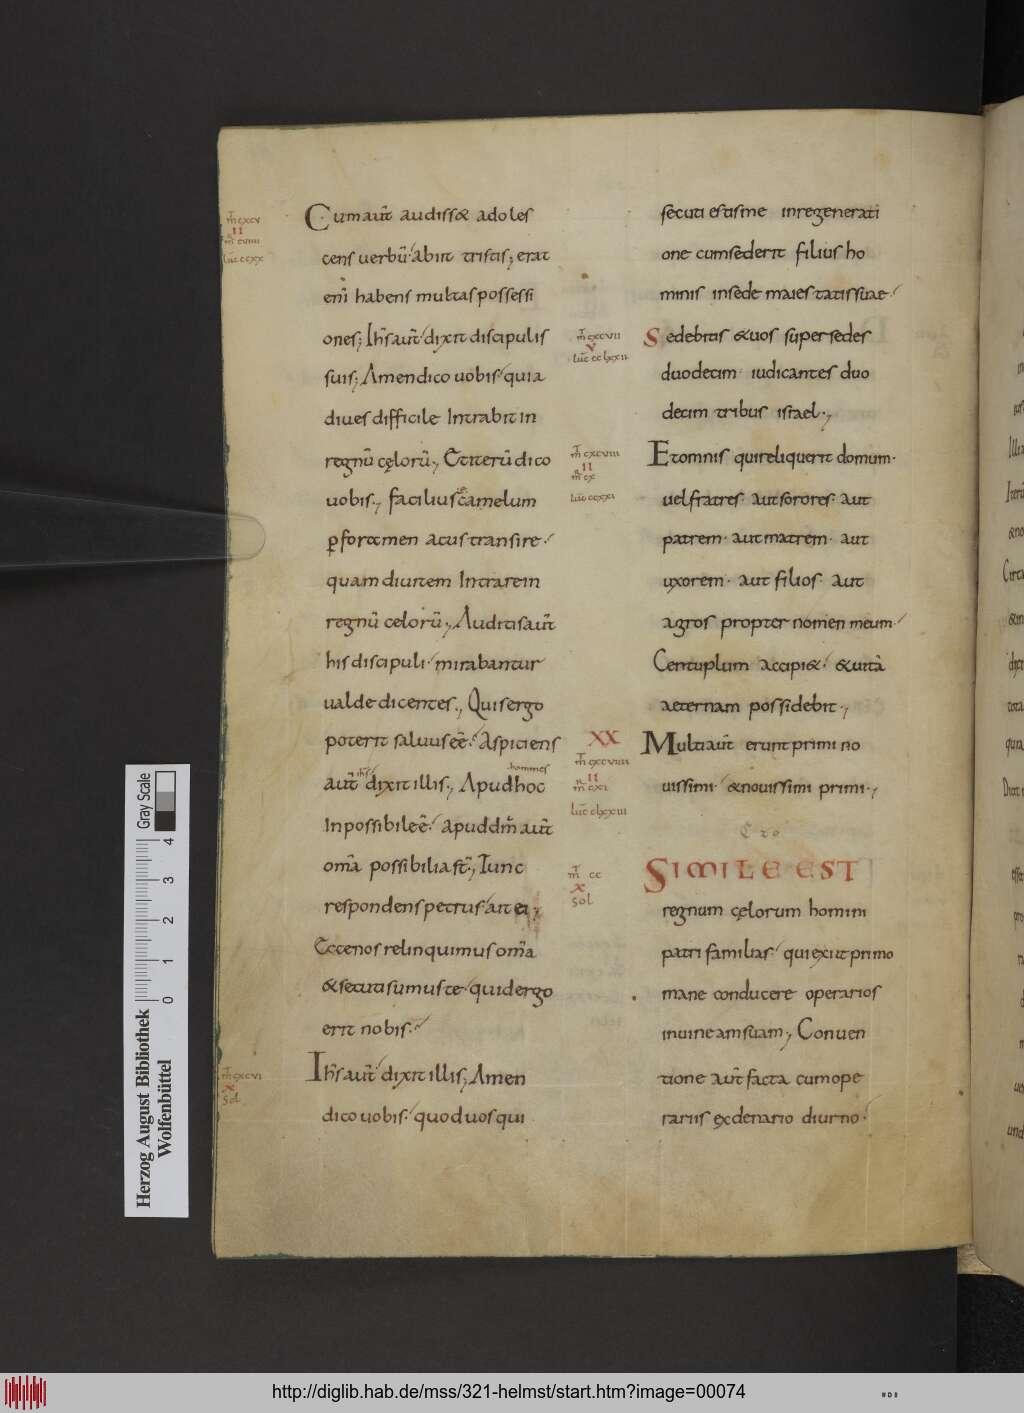 Cum aut̄ audiss& adoles
cens uerbū abiit tristis; erat
eni̅ habens multas possessi
ones; Ih̄s aut̄ dixit discipulis
suis; Amen dico uobis quia
diues difficile Intrabit in
regnū cęlorū., Et iterū dico
uobis., facilius camelum
ꝑ foramen acus transire.
quam diuitem Intrare in
regnū celorū., Auditis aut̄
his discipuli mirabantur
ualde dicentes., Quis ergo
poterit saluus eē. Aspiciens
aut̄ ih̄s dixit illis., Apud homines hoc
Inpossibile ē. apud dm̄ aut̄
om̄a possibilia st̄., Tunc
respondens petrus ait ei;
Ecce nos relinquimus om̄a
& secuti sumus te quid ergo
erit nobis.
Ih̄s aut̄ dixit illis; Amen
dico uobis. quod uos qui
m̄ cxcv
II
m̄ cviiii
luc̄ ccxx
m̄ cxcvi
X
Sol
secuti estis me in regenerati
one cum sederit filius ho
minis in sede maiestatis suae
Sedebitis & uos super sedes
duodecim iudicantes duo
decim tribus israel.,
Et omnis qui reliquerit domum.
uel fratres. aut sorores. aut
patrem. aut matrem. aut
uxorem. aut filios. aut
agros propter nomen meum.
Centuplum accipi&. & uitā
aeternam possidebit.,
Multi aut̄ erunt primi no
uissimi. & nouissimi primi.,
SIMILE EST
regnum cęlorum homini
patri familias. qui exiit primo
mane conducere operarios
in uineam suam., Conuen
tione aut̄ facta cum ope
rariis ex denario diurno.
m̄ cxcvii
V
luc̄ cclxxii
m̄ cxcviii
II
m̄ cx
luc̄ ccxxi
XX
m̄ cxcviiii
II
m̄ cxi
luc̄ clxxiii
m̄ cc
X
Sol
Gray Scale
0 1 2 3 4
Herzog August Bibliothek
Wolfenbüttel
http://diglib.hab.de/mss/321-helmst/start.htm?image=00074